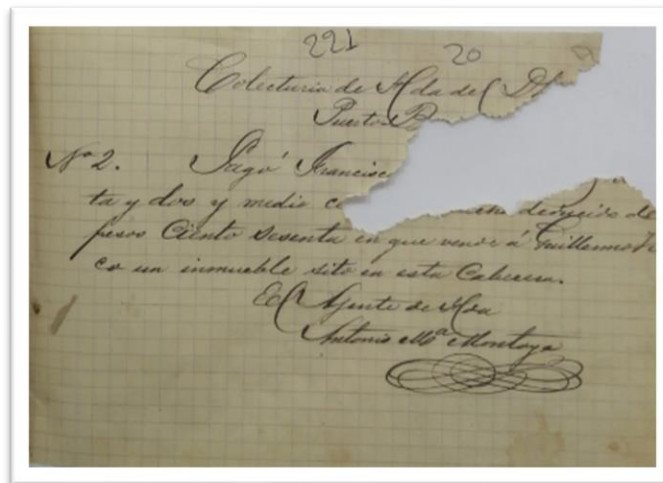 221 20
Colecturia de Hda del D
Puerto
Nº 2. Pagó Francisc
ta y dos y medio ce deducidos de
pesos Ciento sesenta en que vende á Guillermo
co un inmueble sito en esta Cabecera.
El Agente de Hda
Antonio Mª Montoya